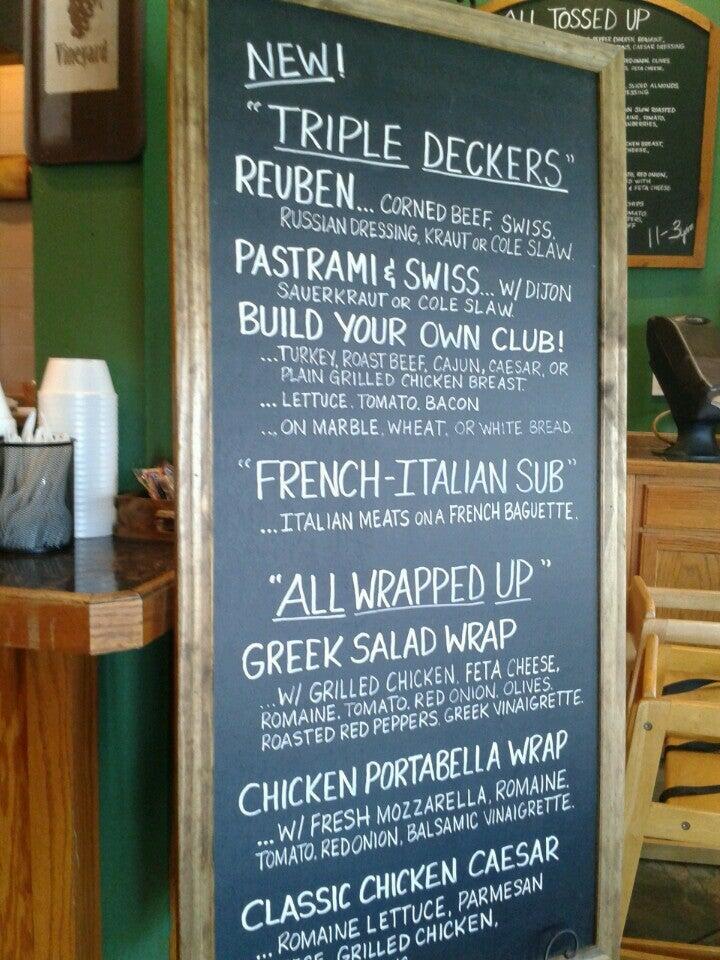 Vineyard
NEW!
"TRIPLE DECKERS"
REUBEN... CORNED BEEF, SWISS,
RUSSIAN DRESSING, KRAUT OR COLE SLAW.
PASTRAMI & SWISS... W/ DIJON
SAUERKRAUT OR COLE SLAW.
BUILD YOUR OWN CLUB!
...TURKEY, ROAST BEEF, CAJUN, CAESAR, OR
PLAIN GRILLED CHICKEN BREAST.
... LETTUCE, TOMATO, BACON
...ON MARBLE, WHEAT, OR WHITE BREAD.
"FRENCH-ITALIAN SUB"
...ITALIAN MEATS ON A FRENCH BAGUETTE.
"ALL WRAPPED UP"
GREEK SALAD WRAP
...W/ GRILLED CHICKEN, FETA CHEESE,
ROMAINE, TOMATO, RED ONION, OLIVES,
ROASTED RED PEPPERS, GREEK VINAIGRETTE.
CHICKEN PORTABELLA WRAP
...W/ FRESH MOZZARELLA, ROMAINE,
TOMATO, RED ONION, BALSAMIC VINAIGRETTE.
CLASSIC CHICKEN CAESAR
... ROMAINE LETTUCE, PARMESAN
GRILLED CHICKEN,
ALL TOSSED UP
CAESAR DRESSING
OLIVES
FETA CHEESE,
SLICED ALMONDS
SLOW ROASTED
TOMATO,
CHICKEN BREAST,
CHEESE,
RED ONION,
WITH
& FETA CHEESE
CHIPS
11-3pm